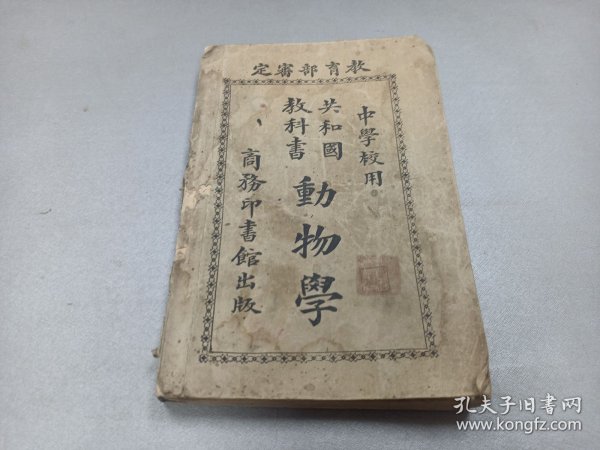 教育部審定
中學校用
共和國
教科書
動物學
商務印書館出版
孔夫子旧书网
www.kongfz.com